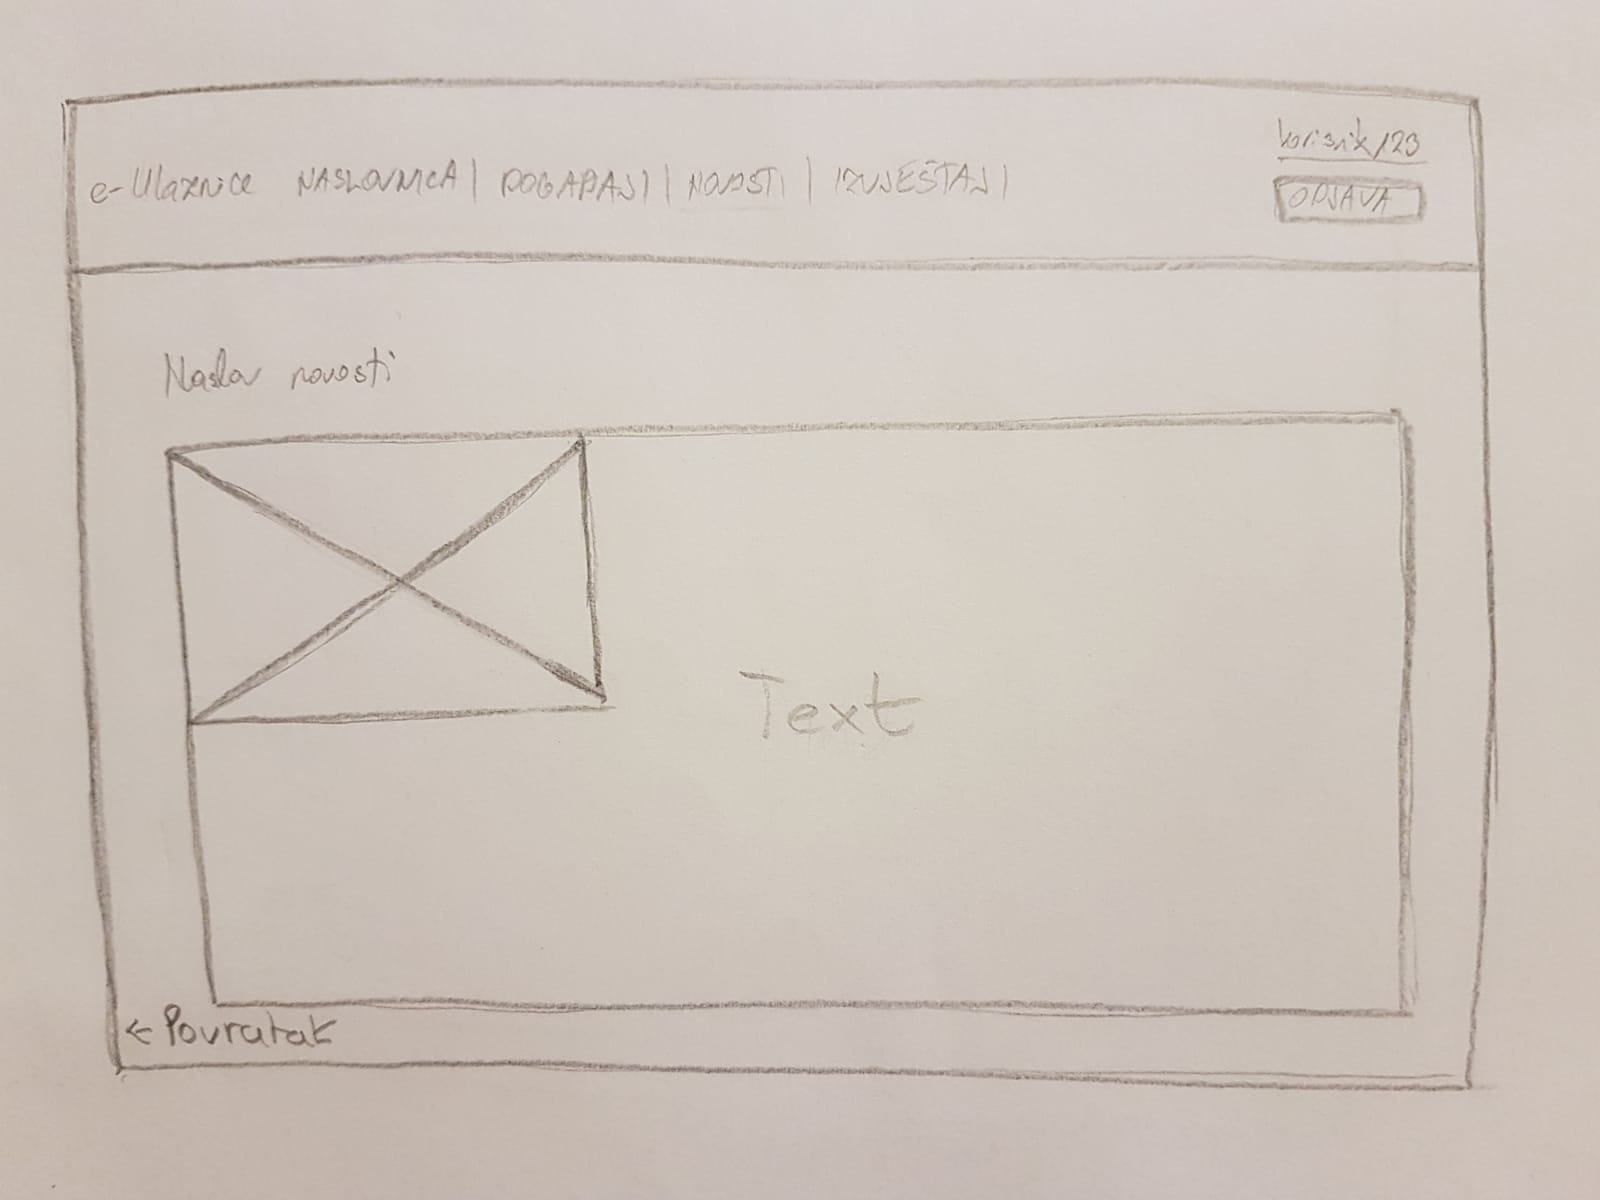 e-Ulaznice NASLOVNICA | DOGAĐAJI | NOVOSTI | IZVJEŠTAJI
korisnik123
ODJAVA
Naslov novosti
Text
← Povratak